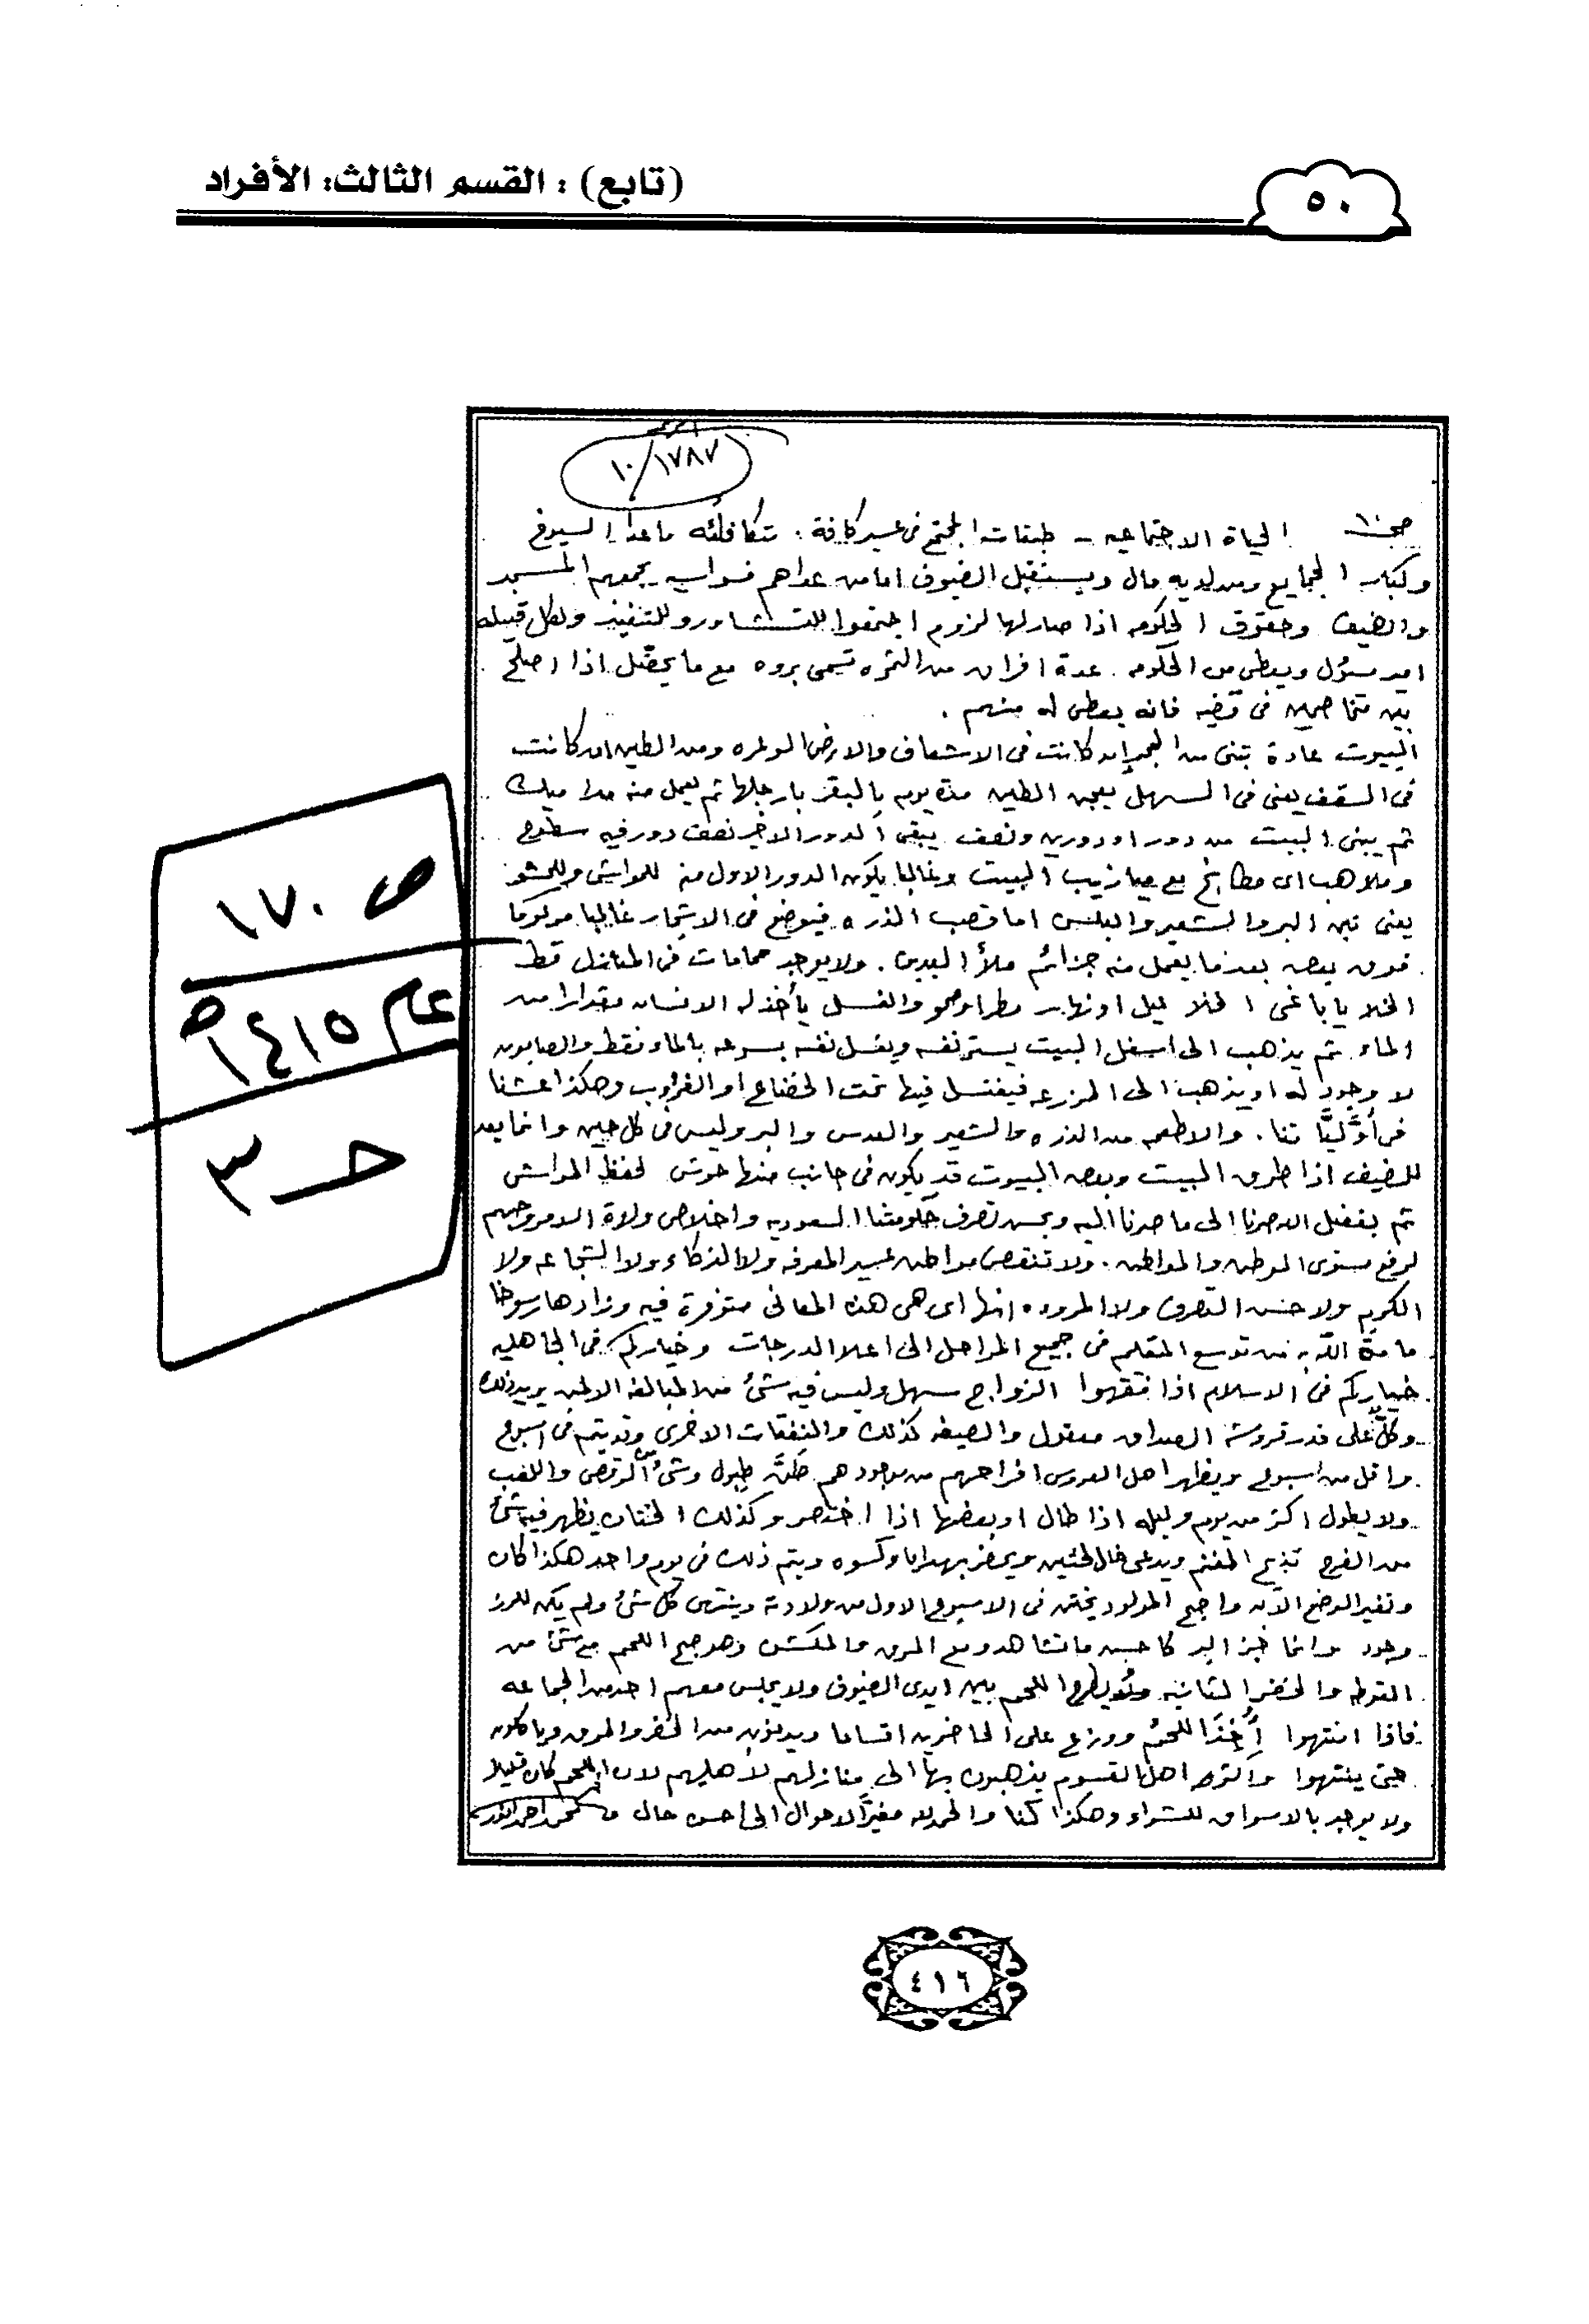 (تابع) : القسم الثالث: الأفراد
٥٠
١٠/١٧٨٧
الحياة الاجتماعيه - طبقات المجتمع فى عسير كافة . متكافئه ماعدا الشيوخ
وكبار الجمايع ومن لديه مال ويستقبل الضيوف اما من عداهم فواسيه يجمعهم المسجد
والضيف وحقوق الحكومه اذا صار لها لزوم اجتمعوا للتشاور وللتنفيذ ولكل قبيله
امير مسئول ويعطى من الحكومه عدة افران من الثمره تسمى بروه مع ما يحصّل اذا اصلح
بين متخاصمين فى قضيه فانه يعطى له منهم .
البيوت عادة تبنى من الحجر ان كانت فى الاشعاف والارض الوعره ومن الطين ان كانت
فى السقف يعنى فى السهل يعجن الطين مدة يوم بالبقر بارجلها ثم يعمل منه مداميك
ثم يبنى البيت من دور او دورين ونصف يبقى الدور الاخير نصف دور فيه سطوح
وملاهب اى مطابخ مع ميازيب البيت وغالبا يكون الدور الاول منه للمواشى وللحشو
يعنى تبن البر والشعير والبلس اما قصب الذره فيوضع فى الاشجار غالبا مركوما
فوق بعض بعدما يعمل منه جزائم ملأ اليدين . ولا يوجد حمامات فى المنازل قط
الخلا ياباغى الخلا ليل او نهار مطر او صحو والغسل يأخذ له الانسان مقدارا من
الماء ثم يذهب الى اسفل البيت يستر نفسه ويغسل نفسه بسرعه بالماء فقط والصابون
لا وجود له او يذهب الى المزرعه فيغتسل فيها تحت وهكذا عشنا
فى أوّليّاتنا . والاطعمه من الذره والشعير والعدس والبر وليس فى كل حين وانما يعد
للضيف اذا طرق البيت وبعض البيوت قد يكون فى جانب منها حوش لحفظ المواشى
ثم بفضل الله صرنا الى ما صرنا اليه وبحسن تصرف حكومتنا السعوديه واخلاص ولاة الامر وحبهم
لرفع مستوى الوطن والمواطن . ولا تنقص مواطن عسير المعرفه ولا الذكاء ولا الشجاعه ولا
الكرم ولا حسن التصرف ولا المروءه انها اى هى هذه المعانى متوفرة فيه وزادها رسوخا
ما منّ الله به من توسع التعليم فى جميع المراحل الى اعلا الدرجات وخياركم فى الجاهليه
خياركم فى الاسلام اذا فقهوا الزواج سهل وليس فيه شئ من المبالغه الا لمن يريد ذلك
وكلٌ على قدر قروشه الصداق معقول والصيغه كذلك والنفقات الاخرى وقد يتم فى اسبوع
واقل من اسبوع ويظهر اهل العروس افراحهم من موجودهم طبول وشئ من الرقص واللعب
ولا يطول اكثر من يوم وليله اذا طال او بعضها اذا اختصر وكذلك الختان يظهر فيه شئ
من الفرح تذبح الغنم ويدعى خال الختين ويحضر بهدايا وكسوه ويتم ذلك فى يوم واحد هكذا كان
وتغير الوضع الآن واصبح المولود يختن فى الاسبوع الاول من ولادته وينتهى كل شئ ولم يكن للرز
وجود وانما خبز البر كما حسب ما تشاهد ومع المرق والمكشن وهو اللحم مع شئ من
القوطه والخضر الثانيه ويطرح اللحم بين ايدى الضيوف ولا يجلس معهم احد من الجماعه
فاذا انتهوا أُخذ اللحم ووزع على الحاضرين اقساما ويدنون من الخضر والمرق وياكلون
حتى ينتهوا واكثر اهل القسوم يذهبون بها الى منازلهم لأهليهم لان اللحم كان قليلا
ولا يوجد بالاسواق للشراء وهكذا كنا والحمدلله مغيّر الاحوال الى احسن حال محمد احمد انور
ص ١٧٠
عام ١٤١٥ه
حـ ٣
٤١٦